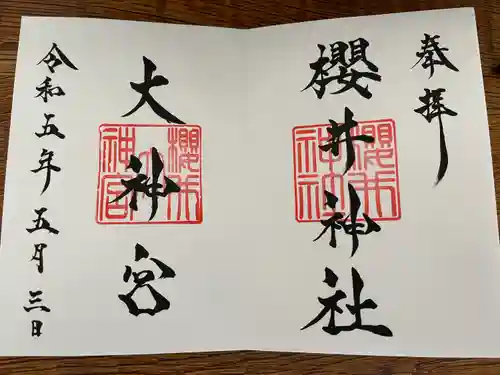 奉拝
櫻井神社
櫻井神社
大神宮
櫻井大神宮
令和五年五月三日